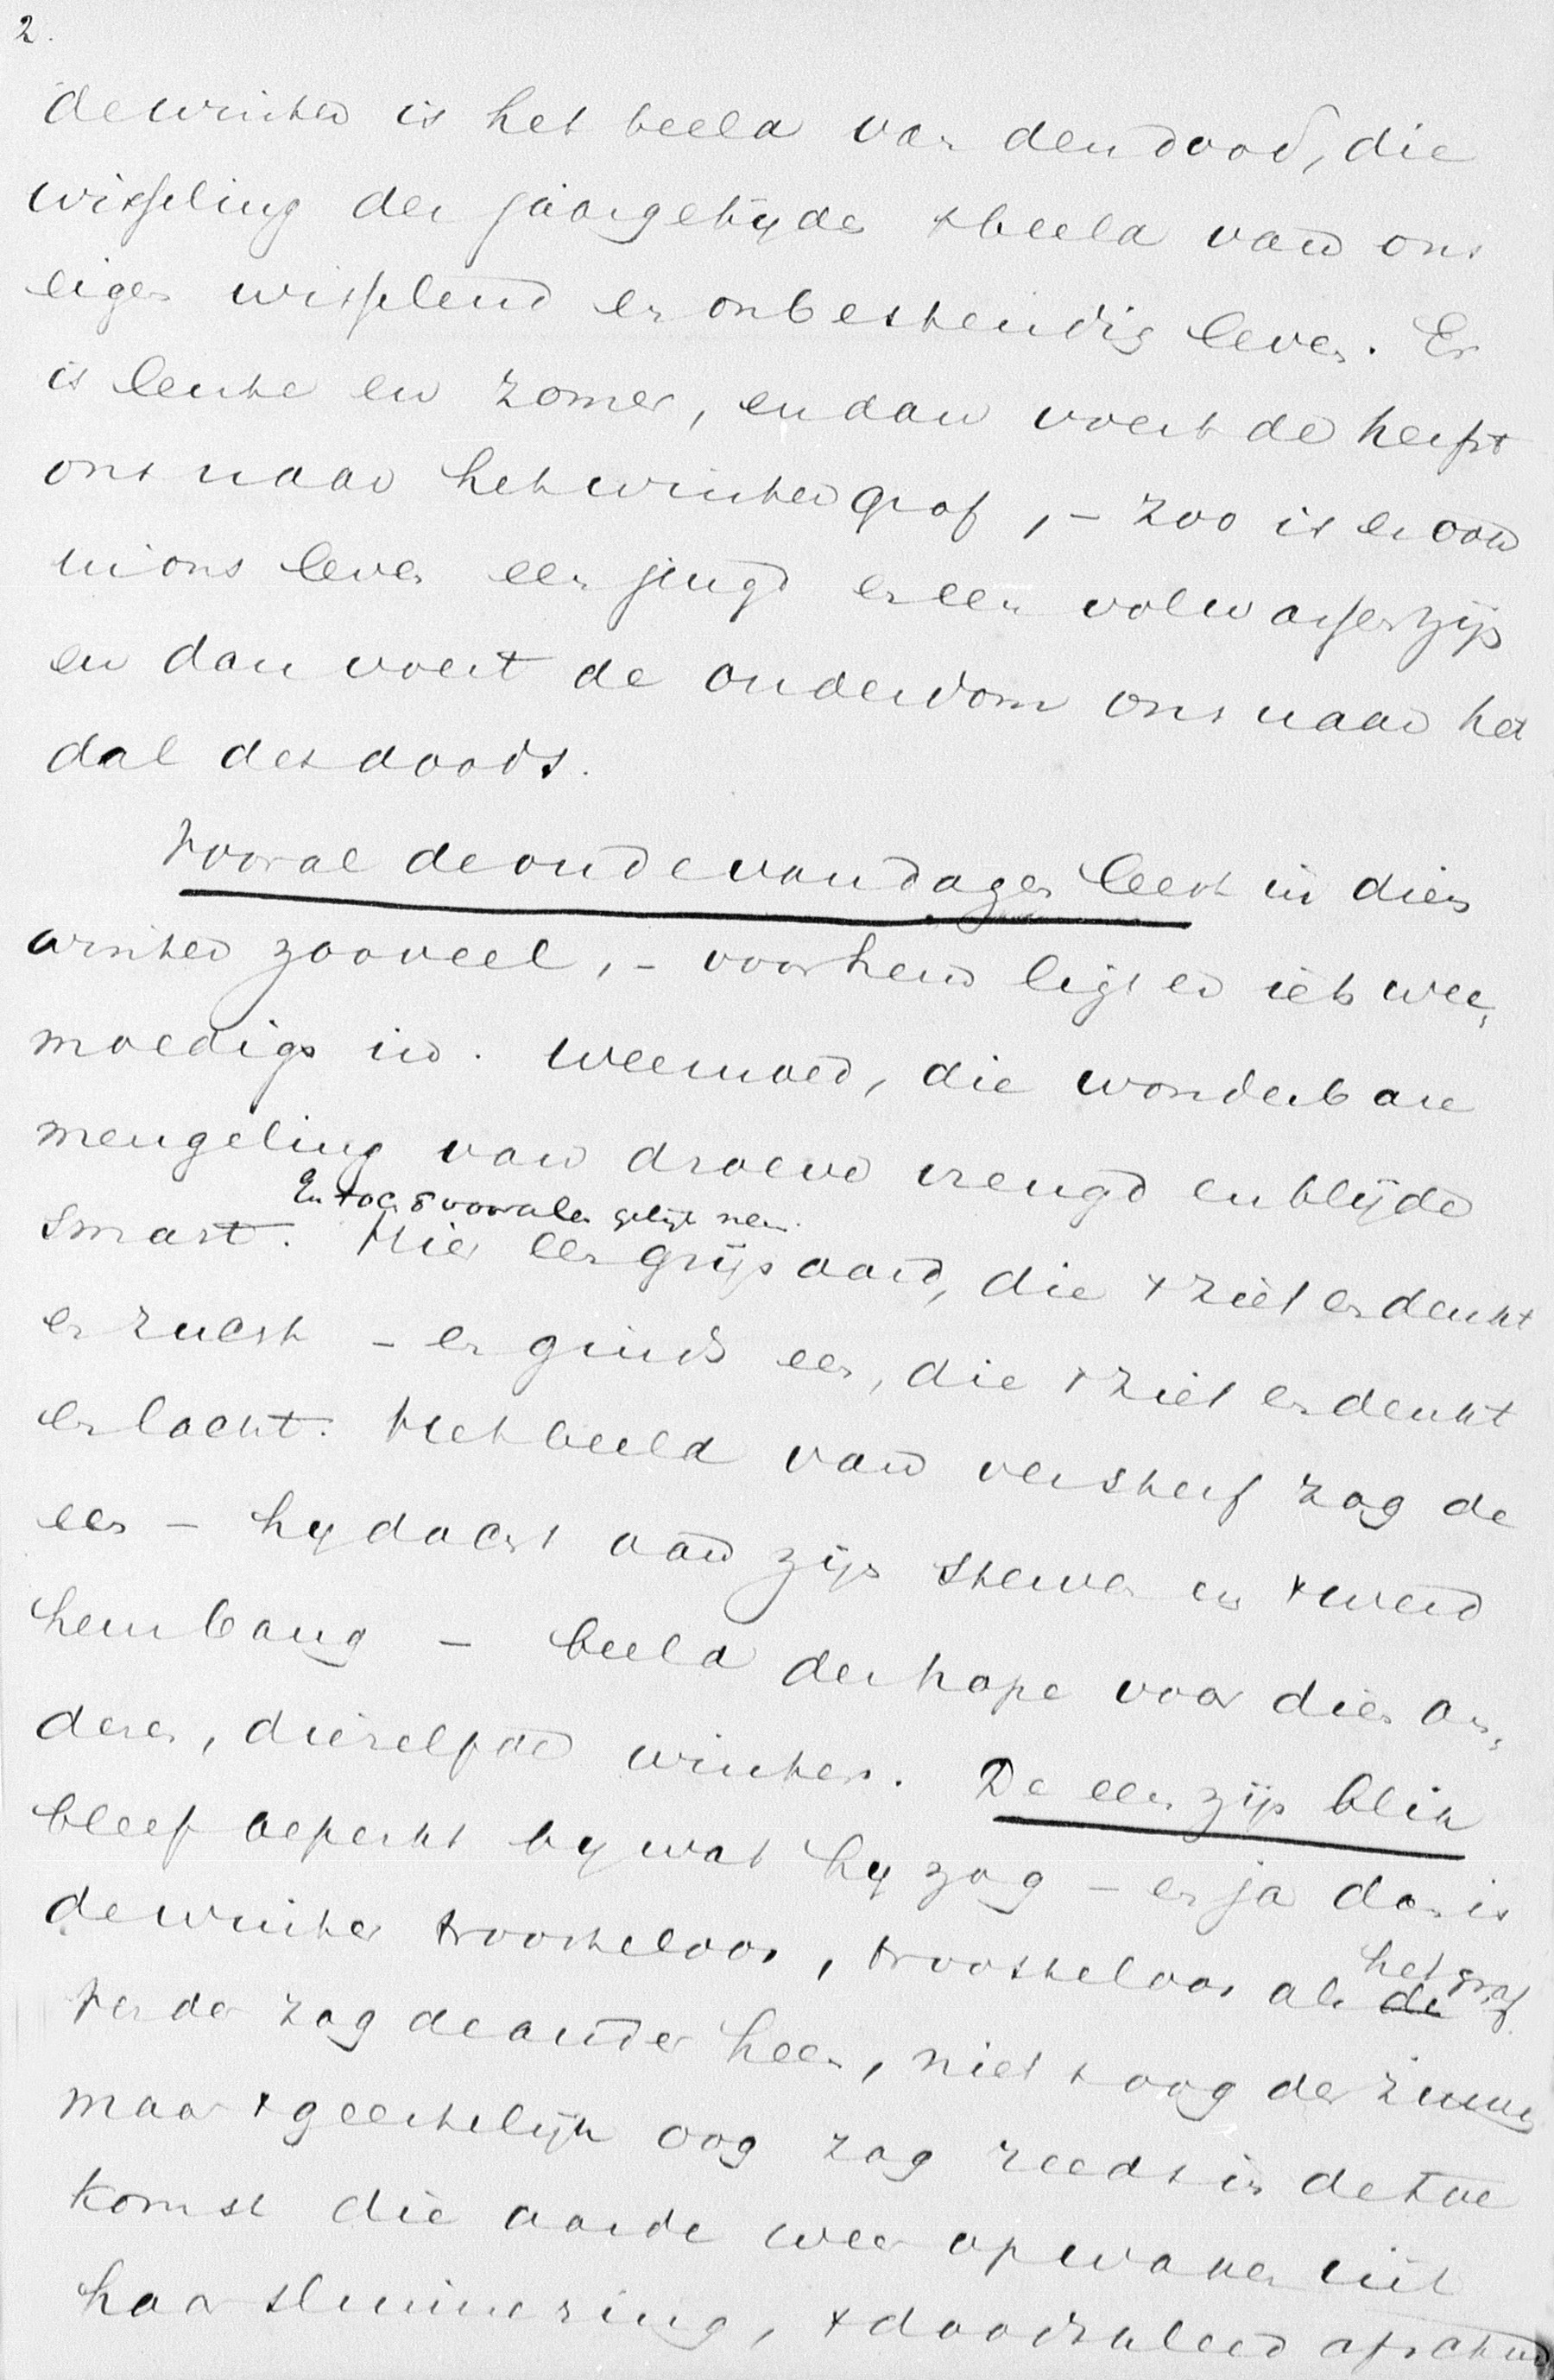 2.
de winter is het beeld van den dood, die
wisseling der jaargetijden 't beeld van ons
eigen wisselend en onbestendig leven. Er
is lente en zomer, en dan voert de herfst
ons naar het wintergraf, - zoo is er ook
in ons leven een jeugd en een volwassen zijn
en dan voert de ouderdom ons naar het
dal des doods.
Vooral de oude van dagen leest in dien
winter zooveel, - voor hem ligt er iets wee„
moedigs in. Weemoed, die wonderbare
mengeling van droeve vreugd en blijde
En toch voor allen gelijk
smart. Hier een grijsaard, die 't ziet en denkt
en zucht - en ginds een, die 't ziet en denkt
en lacht. Het beeld van versterf zag de
een - hy dacht aan zijn sterven en 't werd
hem bang - beeld der hope voor dien an„
deren, diezelfde winter. De een zijn blik
bleef beperkt by wat hy zag - en ja dan is
de winter troosteloos, troosteloos als de
het graf.
Verder zag de ander heen, niet 't oog der zinnen
maar 't geestelijk oog zag reeds in de toe
komst die aarde weer opwaken uit
haar sluimering, 't doodskleed afschud